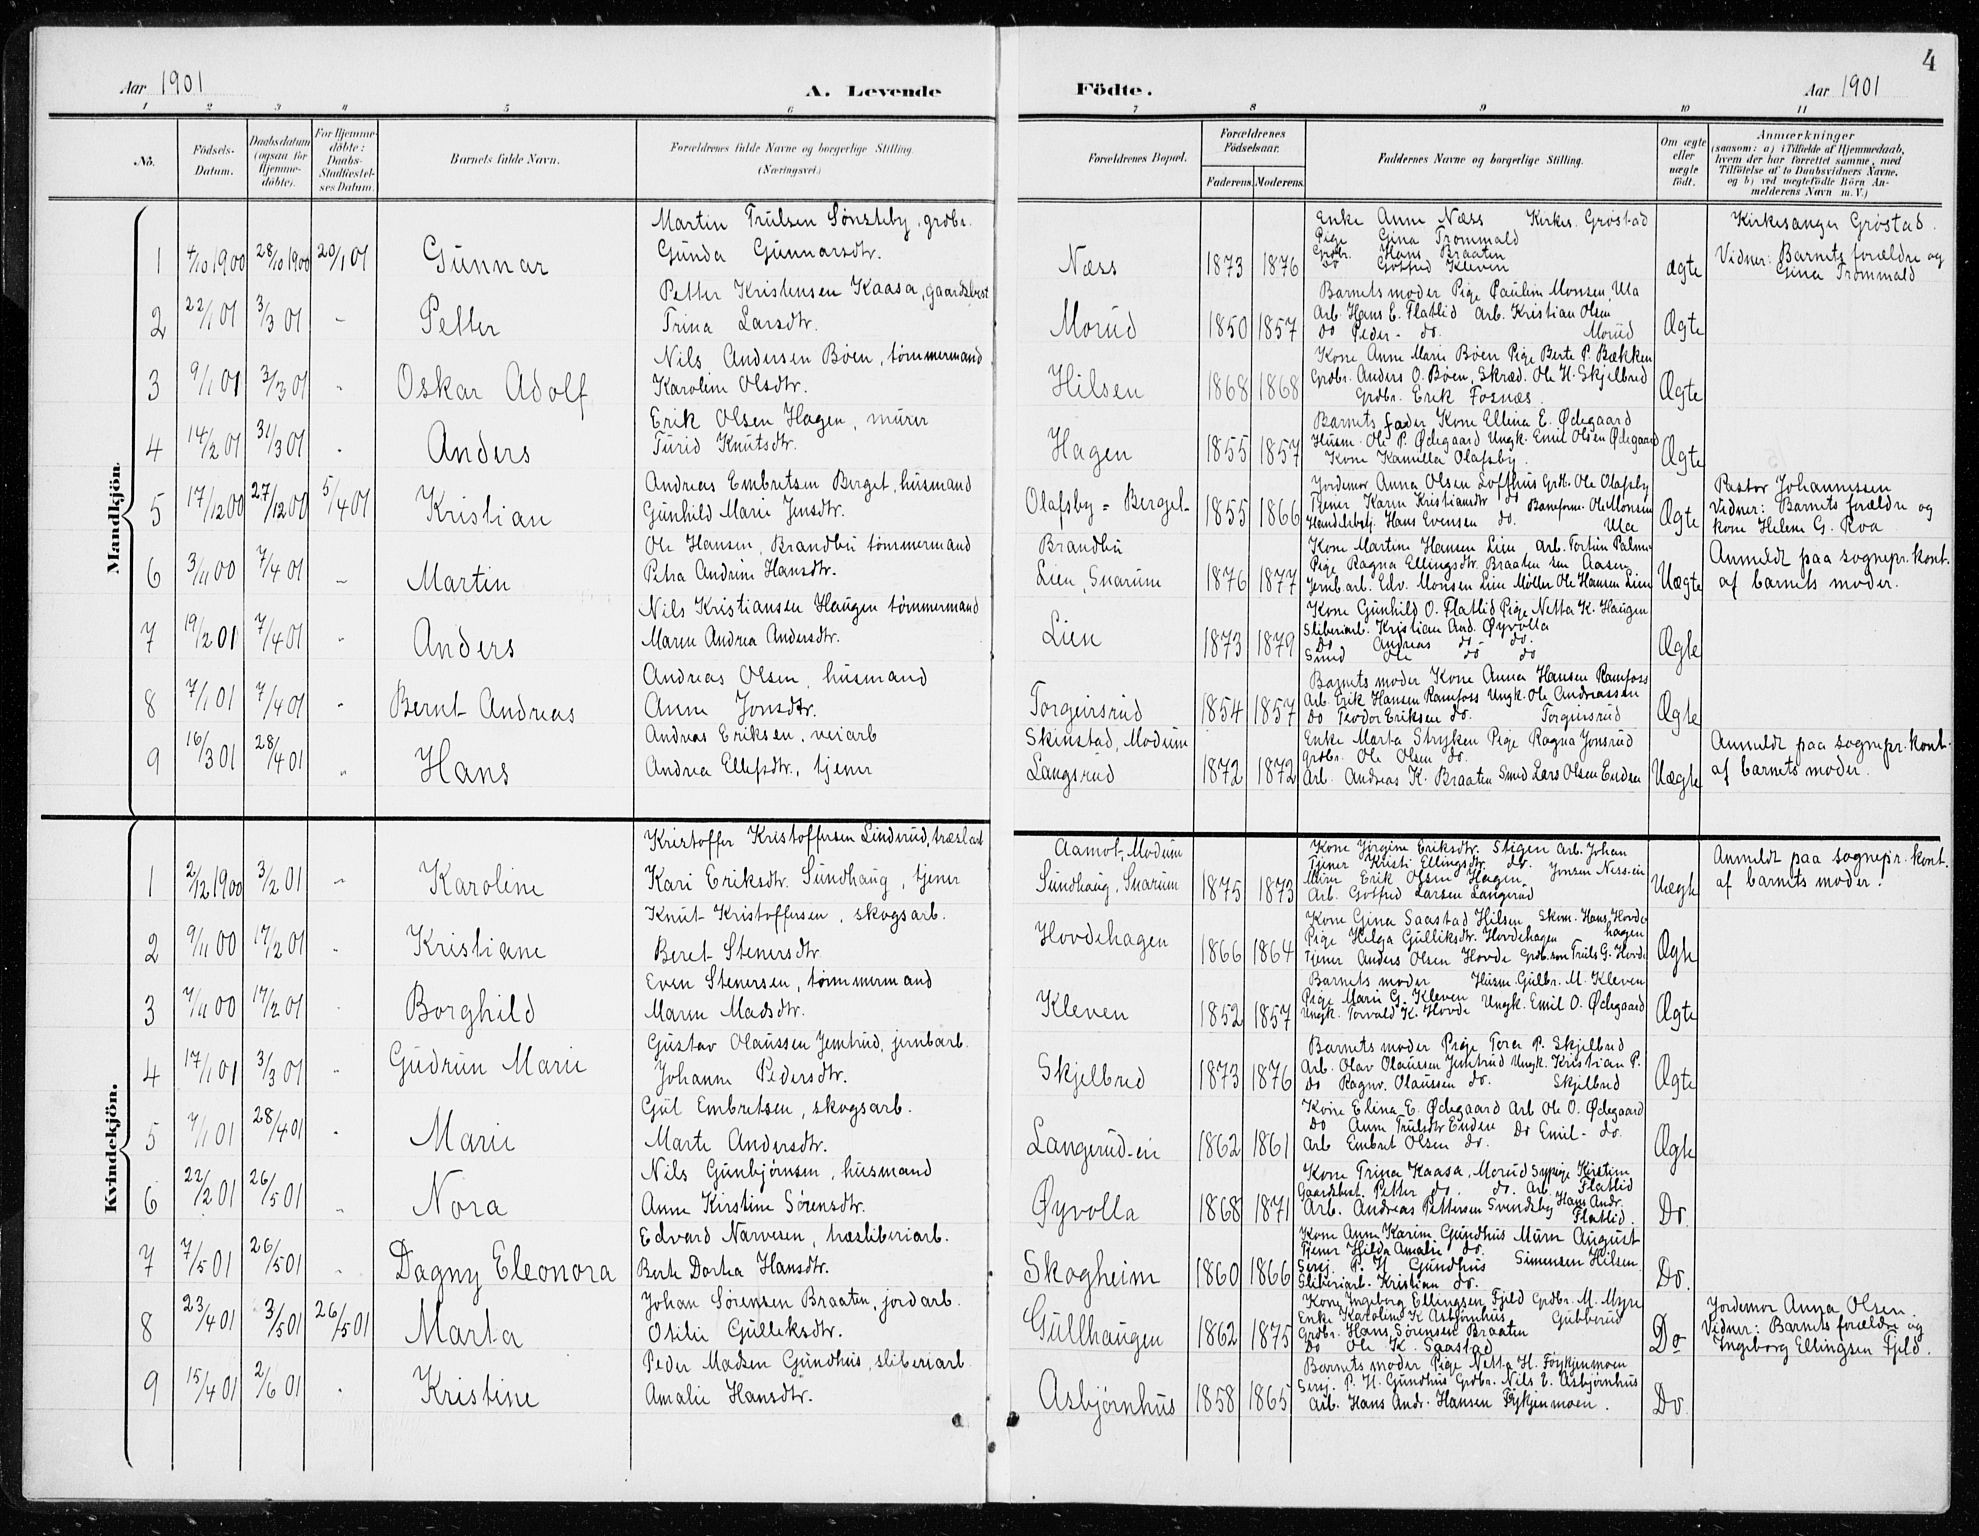 4
Aar 1901 A. Levende Födte. Aar 1901
1 2 3 4 5 6 7 8 9 10 11
No. Födsels-Datum. Daabsdatum (ogsaa for Hjemme-döbte). For Hjemme-döbte: Daabs-Stadfæstel-ses Datum. Barnets fulde Navn. Forældrenes fulde Navne og borgerlige Stilling. (Næringsvei.) Forældrenes Bopæl. Forældrenes Födselsaar. Faderens. Moderens. Faddernes Navne og borgerlige Stilling. Om ægte eller uægte födt. Anmærkninger (saasom: a) i Tilfælde af Hjemmedaab, hvem der har forrettet samme, med Tilföielse af to Daabsvidners Navne, og b) ved uægtefödte Börn An-melderens Navn m. V.)
Mandkjön.
Martin Trulsen Sønsteby, grdbr. Enke Anne Næss Kirkes. Grøstad Kirkesanger Grøstad.
Pige Gina Trommald
1 4/10 1900 28/10 1900 20/1 01 Gunnar Gunda Gunnarsdtr. Næss 1873 1876 Grdbr. Hans Braaten ægte Vidner: Barnets forældre og
Do Gotfred Kleven Gina Trommald
Petter Kristensen Kaasa, gaardsbest Barnets moder Pige Pauline Monsen, Ula
2 22/1 01 3/3 01 - Petter Trina Larsdtr. Morud 1850 1857 Arb. Hans E. Flatlid Arb. Kristian Olsen Ægte
do Peder - do. Morud
Nils Andersen Bøen, tømmermand Kone Anne Marie Bøen Pige Berte P. Bækken
3 9/1 01 3/3 01 " Oskar Adolf Karoline Olsdtr. Hilsen 1868 1868 Grdbr. Anders O. Bøen, Skræd. Ole H. Skjelbred Ægte
Grdbr. Erik Fosnæs.
Erik Olsen Hagen, murer Barnets fader Kone Ellina E. Ødegaard
4 14/2 01 31/3 01 " Anders Turid Knutsdtr. Hagen 1855 1857 Husm. Ole P. Ødegaard Ungk. Emil Olsen Ødegaard Ægte
Kone Kamilla Olafsby.
Andreas Embretsen Berget, husmand Jordemor Anna Olsen Loffhus Grdb. Ole Olafsby Pastor Johannissen
5 17/12 00 27/12 00 5/4 01 Kristian Gunhild Marie Jensdtr. Olafsby = Berget 1855 1866 Tjener Karen Kristiansdtr do Baneform. Ole Monsen Ægte Vidner: Barnets forældre og
Handelsbetj. Hans Evensen do. Ula kone Helene G. Roa
Ole Hansen, Brandbu tømmermand Brandbu Kone Martine Hansen Lien Arb. Torfin Palme Anmeldt paa sognepr. kont.
6 3/11 00 7/4 01 - Martin Petra Andrine Hansdtr. Lien, Snarum 1876 1877 Pige Ragna Ellingsdtr. Braaten Uægte af barnets moder.
Jernb.arb. Edv. Monsen Lien Møller Ole Hansen Lien
Nils Kristiansen Haugen tømmermand Kone Gunhild O. Flatlid Pige Netta K. Haugen
7 19/2 01 7/4 01 " Anders Maren Andrea Andersdtr. Lien 1873 1879 Sliberiarb. Kristian And. Øyvolla Ægte
Do Andreas do do.
Smed Ole do do
Andreas Olsen, husmand Barnets moder Kone Anna Hansen Ramfoss
8 7/1 01 7/4 01 " Bernt Andreas Anne Jonsdtr. Torgersrud 1854 1857 Arb. Erik Hansen Ramfoss Ungk. Ole Andreassen Ægte
do Teodor Eriksen do. Torgersrud
Andreas Eriksen, veiarb Skinstad, Modum Enke Marta Stryken Pige Ragna Jonsrud Anmeldt paa sognepr. kont.
9 16/3 01 28/4 01 " Hans Andrea Ellefsdtr., tjener Langsrud 1872 1872 Grdbr. Ole Olsen do. Uægte af barnets moder.
Arb. Andreas K. Braaten Smed Lars Olsen Enden
Kvindekjön.
Kristoffer Kristoffersen Linderud, træslast Aamot, Modum Kone Jørgine Eriksdtr. Stigen Arb. Johan Anmeldt paa sognepr. kont.
1 2/12 1900 3/2 01 - Karoline Kari Eriksdtr. Sundhaug, tjener Sundhaug, Snarum 1875 1873 Tjener Kristi Ellingsdtr do. Jonsen Ness-eie Uægte af barnets moder.
Murer Erik Olsen Hagen
Arb. Gotfred Larsen Langerud
Knut Kristoffersen, skogsarb. Kone Gina Saastad Hilsen Skom. Hans Hovde-
2 9/11 00 17/2 01 " Kristiane Beret Stenersdtr Hovdehagen 1866 1864 Pige Helga Gulliksdtr. Hovdehagen hagen Ægte
Tjener Anders Olsen Hovde Grdb.søn Truls G. Hovde
Even Stenersen, tømmermand Barnets moder Husm. Gulbr. M. Kleven
3 7/11 00 17/2 01 " Borghild Maren Madsdtr. Kleven 1852 1857 Pige Marie G. Kleven Ungk. Emil O. Ødegaard Ægte
Ungk. Torvald K. Hovde
Gustav Olaussen Jemtrud, jernbarb. Barnets moder Pige Tora P. Skjelbred
4 17/1 01 3/3 01 " Gudrun Marie Johanne Pedersdtr. Skjelbred 1873 1876 Arb. Olav Olaussen Jemtrud Ungk. Kristian P. Ægte
Do Ragnv. Olaussen do. Skjelbred
Gul Embretsen, skogsarb. Kone Elina E. Ødegaard Arb Ole O. Ødegaard
5 7/1 01 28/4 01 " Marie Marte Andersdtr. Langerud-eie 1862 1861 Do Anne Trulsdtr Enden Do Emil - do. Ægte
Arb Embret Olsen do.
Nils Gunbjørnsen, husmand Kone Trina Kaasa, Morud Sypige Kirstine
6 22/2 01 26/5 01 " Nora Anne Kirstine Sørensdtr. Øyvolla 1868 1871 Gaardsbest. Petter do. do. Arb. Flatlid Do.
Arb. Andreas Pettersen Svendsby Hans Andr. Flatlid.
Edvard Narvesen, træsliberiarb. Kone Anne Karine Gundhus Murer August
7 7/5 01 26/5 01 " Dagny Eleonora Berte Dortea Hansdtr. Skogheim 1860 1866 Tjener Hilda Amalie do. Do.
Serj. P. H. Gundhus Simensen Hilsen
Sliberiarb. Kristian do.
Johan Sørensen Braaten, jordarb. Kone Ingeborg Ellingsen Fjeld Grdbr. M. Myre Jordemor Anna Olsen.
8 23/4 01 3/5 01 26/5 01 Marta Otilie Gulliksdtr. Gullhaugen 1862 1875 Enke Karoline K Asbjørnhus Gubberud Do Vidner: Barnets forældre og
Grdbr. Hans Sørensen Braaten Ingeborg Ellingsen Fjeld.
Do Ole K. Saastad
Peder Madsen Gundhus, sliberiarb Barnets moder Pige Netta H. Frykjenmoen
9 15/4 01 2/6 01 " Kristine Amalie Hansdtr. Asbjørnhus 1858 1865 Serj. P. H. Gundhus Grdbr. Nils E. Asbjørnhus Do.
Arb. Hans Andr. Hansen Frykjenmoen.